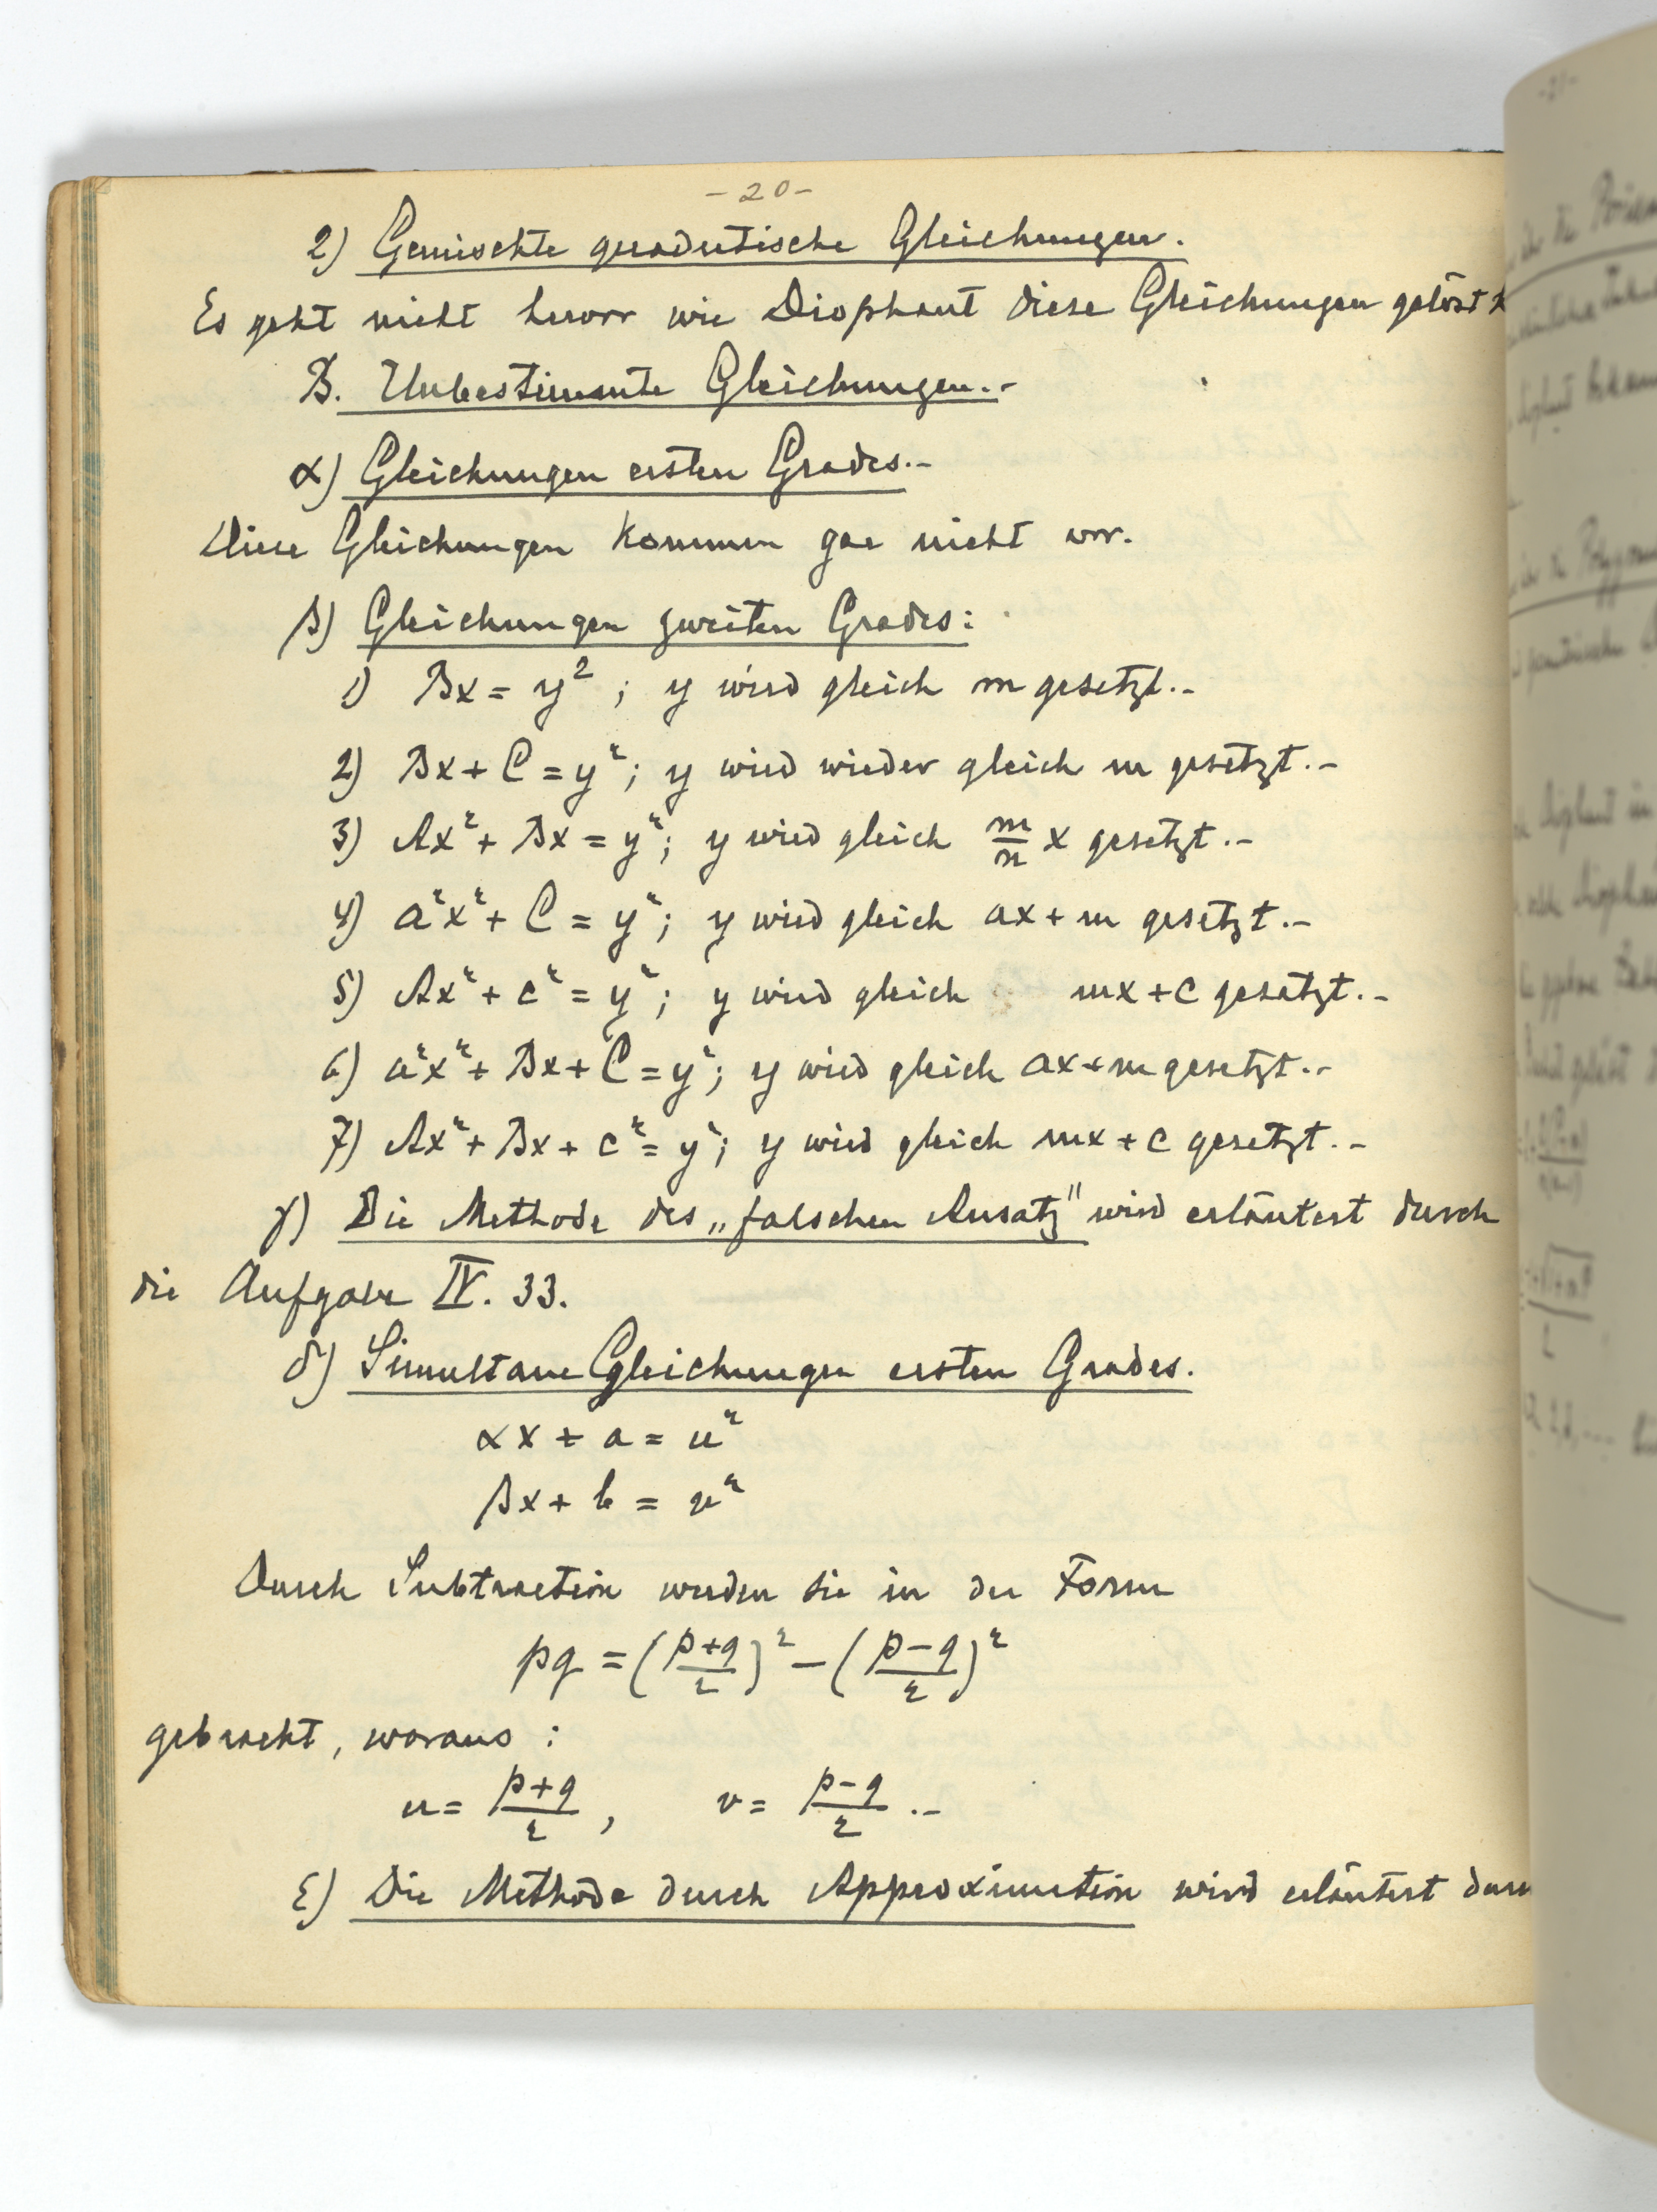 -20-
2) Gemischte quadratische Gleichungen.
Es geht nicht hervor wie Diophant diese Gleichungen gelöst
B. Unbestimmte Gleichungen.-
α) Gleichungen ersten Grades.-
Diese Gleichungen kommen gar nicht vor.
β) Gleichungen zweiten Grades:
1) Bx = y²; y wird gleich m gesetzt.-
2) Bx + C = y²; y wird wieder gleich m gesetzt.-
3) Ax² + Bx = y²; y wird gleich m/n x gesetzt.-
4) a²x² + C = y²; y wird gleich ax + m gesetzt.-
5) Ax² + c² = y²; y wird gleich mx + c gesetzt.-
6) a²x² + Bx + C = y²; y wird gleich ax + m gesetzt.-
7) Ax² + Bx + c² = y²; y wird gleich mx + c gesetzt.-
γ) Die Methode des „falschen Ansatz" wird erläutert durch
die Aufgabe IV. 33.
δ) Simultane Gleichungen ersten Grades.
αx + a = u²
βx + b = v²
Durch Subtraction werden sie in der Form
pq = ((p+q)/2)² - ((p-q)/2)²
gebracht, woraus:
u = (p+q)/2, v = (p-q)/2 .-
ε) Die Methode durch Approximation wird erläutert
-21-